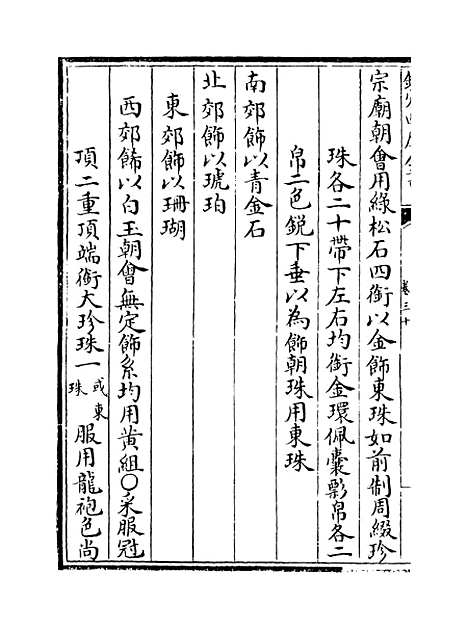 卷三十
宗廟朝會用綠松石四銜以金飾東珠如前制周綴珍
珠各二十帶下左右均銜金環佩囊㡪帛各二
帛二色銳下垂以為飾朝珠用東珠
南郊飾以青金石
北郊飾以琥珀
東郊飾以珊瑚
西郊飾以白玉朝會無定飾系均用黃組○采服冠
頂二重頂端銜大珍珠一或東珠服用龍袍色尚